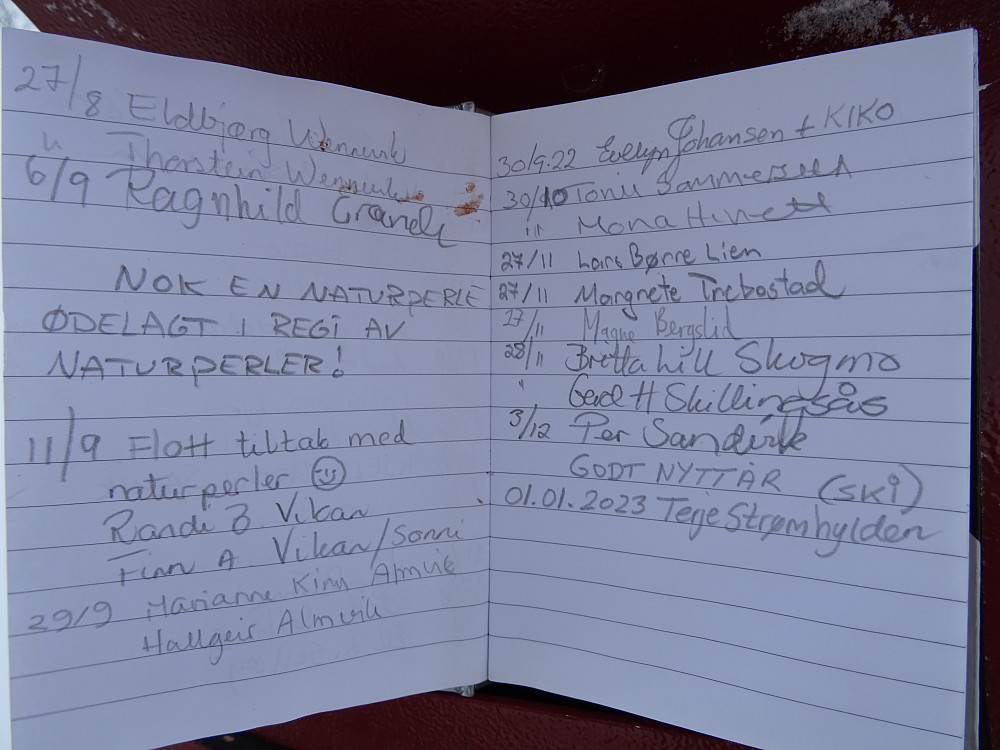 27/8 Eldbjørg Wennevik
" Thorstein Wennevik
6/9 Ragnhild Grande
NOK EN NATURPERLE
ØDELAGT I REGI AV
NATURPERLER!
11/9 Flott tiltak med
naturperler
Randi B Vikan
Finn A Vikan/Sonni
29/9 Marianne Kinn Almvik
Hallgeir Almvik
30/9-22 Evelyn Johansen + KIKO
30/10 Tonil
" Mona
27/11 Lars Børre Lien
27/11 Margrete Trebostad
27/11 Magne Bergslid
28/11 Britta Lill Skogmo
" Gerd H Skillingsås
3/12 Per Sandvik
GODT NYTTÅR (SKI)
01.01.2023 Terje Strømhylden